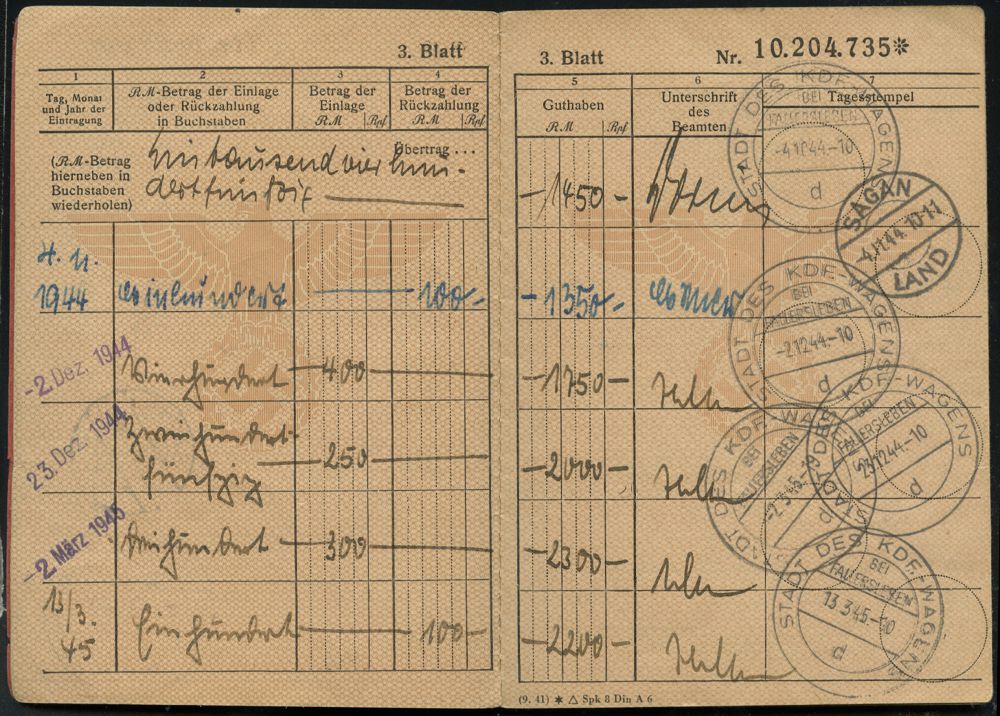 3. Blatt
1 2 3 4
Tag, Monat und Jahr der Eintragung
RM-Betrag der Einlage oder Rückzahlung in Buchstaben
Betrag der Einlage
RM Rpf
Betrag der Rückzahlung
RM Rpf
(RM-Betrag hierneben in Buchstaben wiederholen)
Übertrag . . .
Eintausendvierhun-
dertfünfzig
4. 11.
1944 Einhundert 100
-2. Dez. 1944 Vierhundert 400
23. Dez. 1944 Zweihundert-
fünfzig 250
-2. März 1945 Dreihundert 300
13/3.
45 Einhundert 100
3. Blatt Nr. 10.204.735*
5 6 7
Guthaben
RM Rpf
Unterschrift des Beamten
Tagesstempel
-1450-
-1350-
-1750-
-2000-
-2300-
-2200-
STADT DES KDF-WAGENS
BEI
FALLERSLEBEN
-4.1044.-10
d
SAGAN
4.11.44.10-11
LAND
STADT DES KDF-WAGENS
BEI
FALLERSLEBEN
-2.1244.-10
d
STADT DES KDF-WAGENS
BEI
FALLERSLEBEN
23.1244.-10
d
STADT DES KDF-WAGENS
BEI
FALLERSLEBEN
-2.3.45.-9
d
STADT DES KDF-WAGENS
BEI
FALLERSLEBEN
13.3.45.-10
d
(9. 41) * △ Spk 8 Din A 6